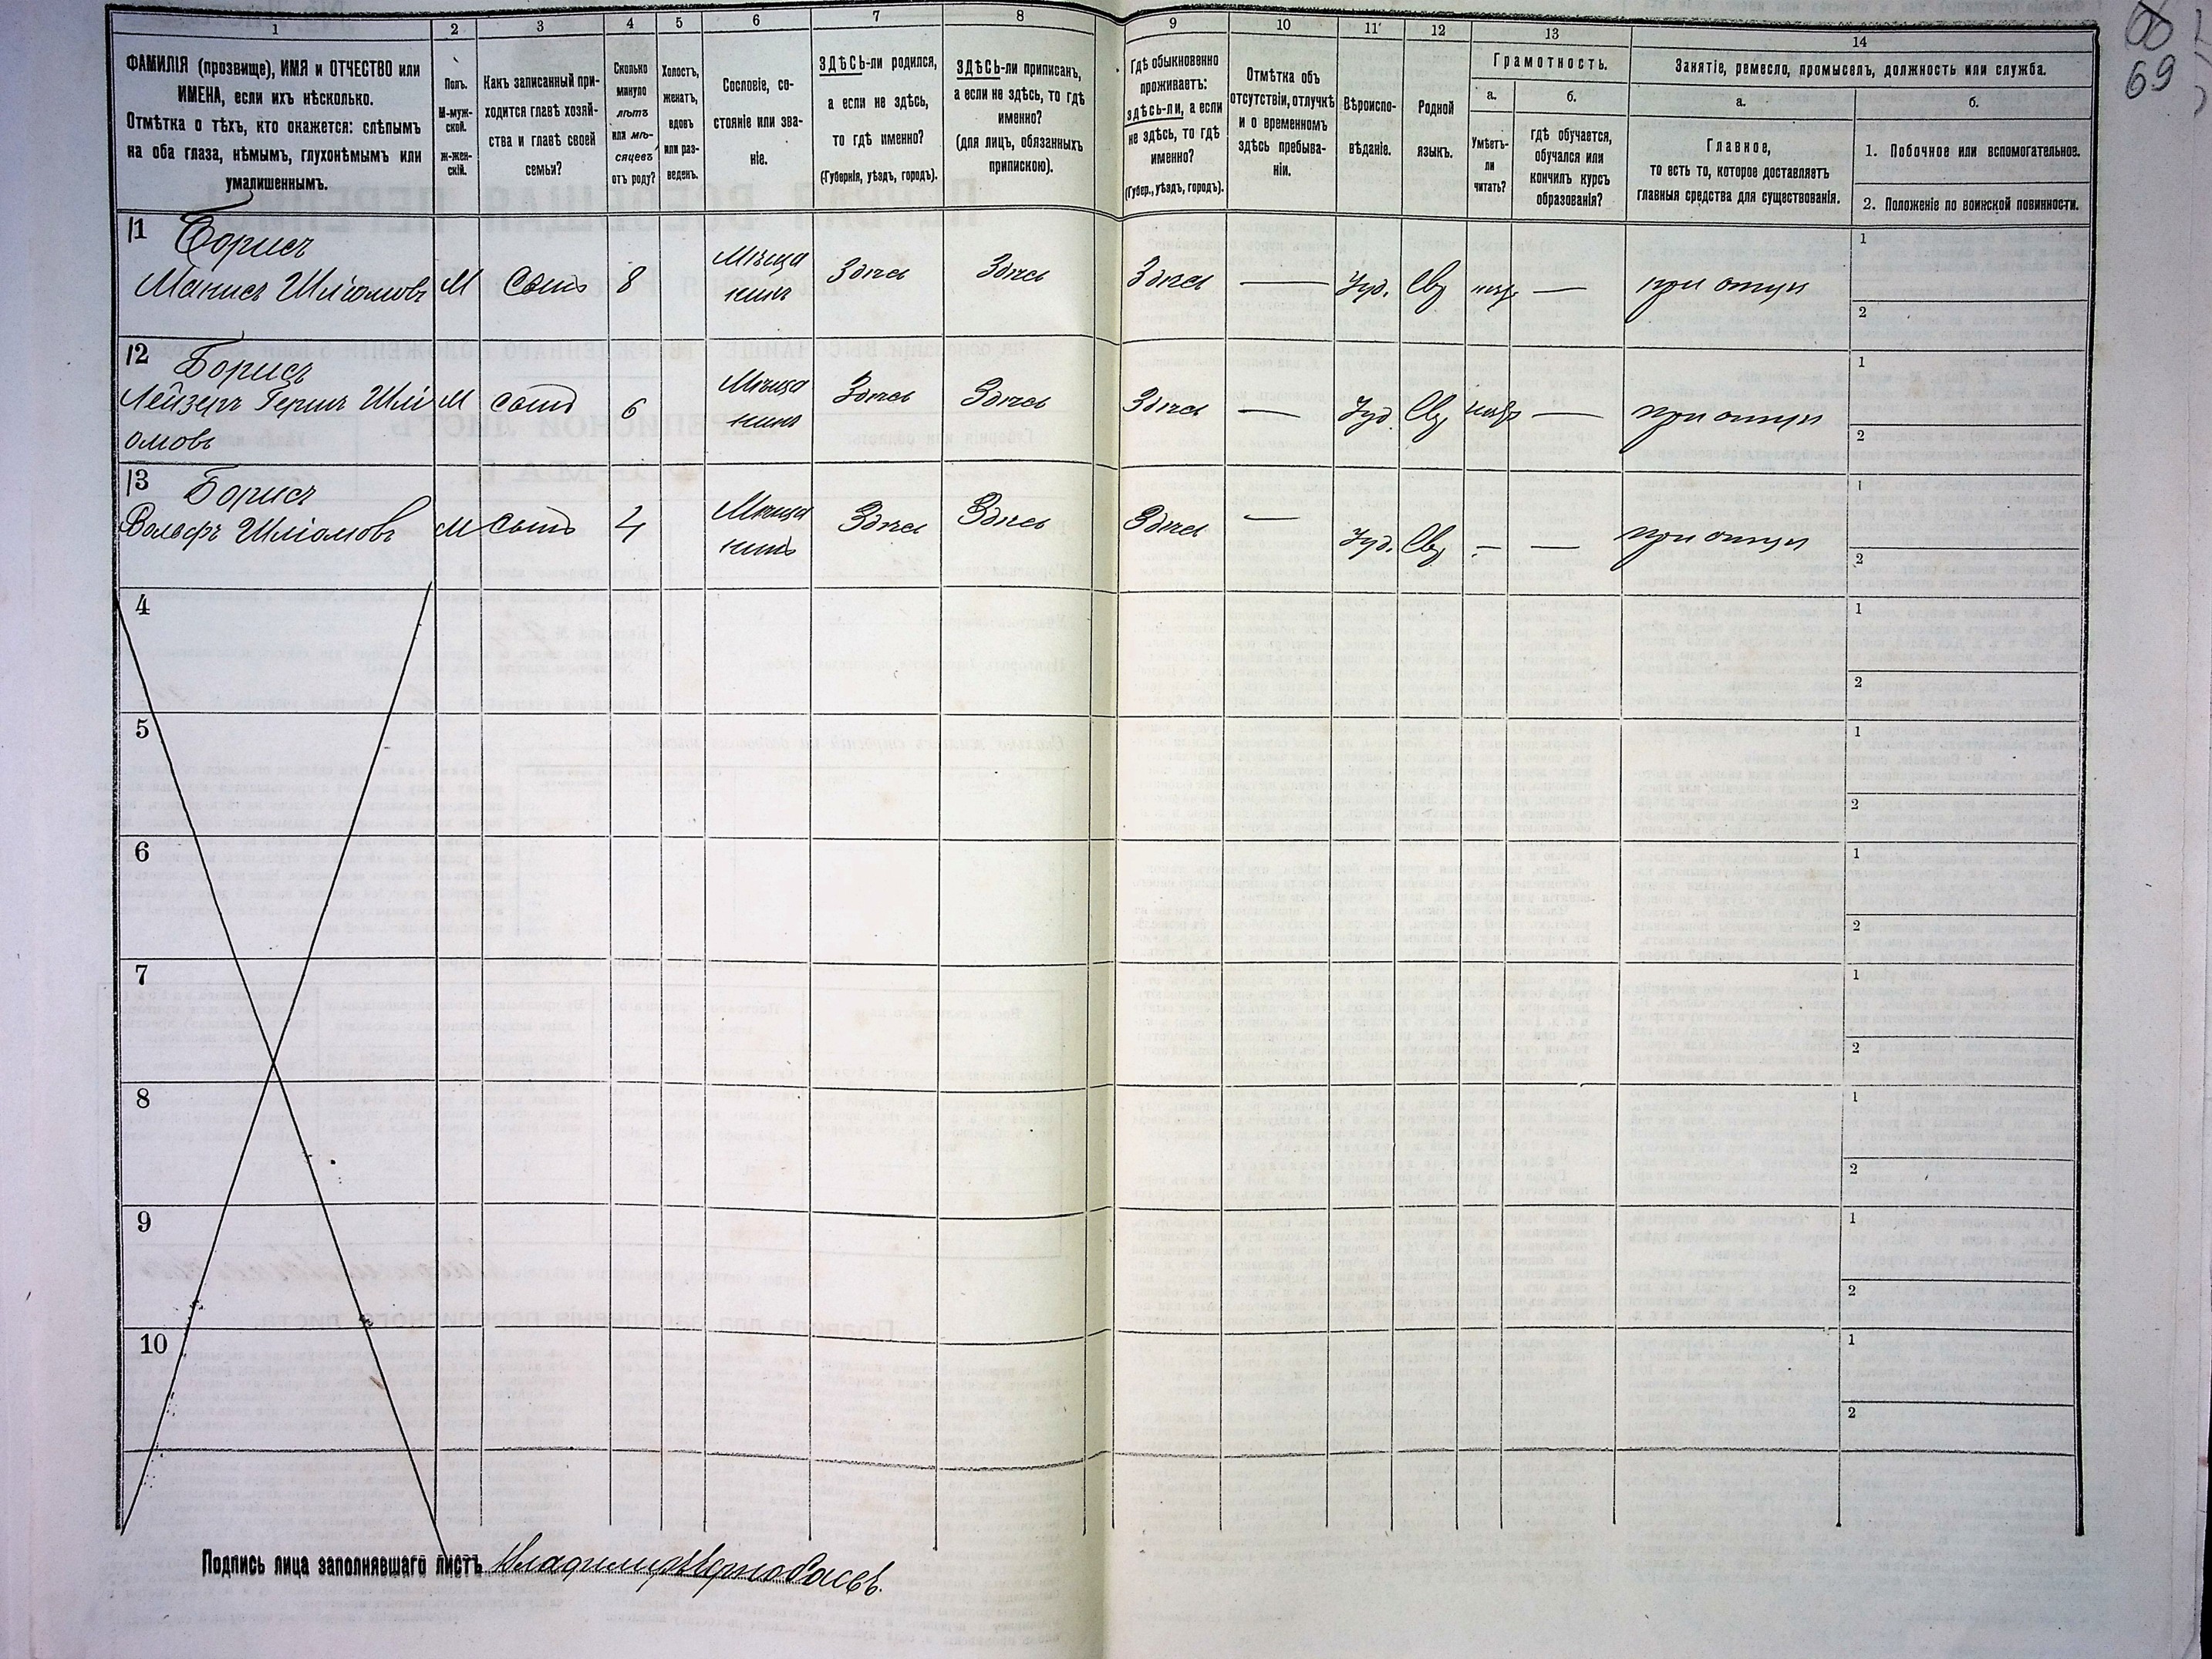 69
1 2 3 4 5 6 7 8 9 10 11 12 13 14
ФАМИЛІЯ (прозвище), ИМЯ и ОТЧЕСТВО или ИМЕНА, если ихъ нѣсколько.
Отмѣтка о тѣхъ, кто окажется: слѣпымъ на оба глаза, нѣмымъ, глухонѣмымъ или умалишеннымъ.
Полъ.
М-мужской.
ж-женскій.
Какъ записанный приходится главѣ хозяйства и главѣ своей семьи?
Сколько минуло лѣтъ или мѣсяцевъ отъ роду?
Холостъ, женатъ, вдовъ или разведенъ.
Сословіе, состояніе или званіе.
ЗДѢСЬ-ли родился, а если не здѣсь, то гдѣ именно?
(Губернія, уѣздъ, городъ).
ЗДѢСЬ-ли приписанъ, а если не здѣсь, то гдѣ именно?
(для лицъ, обязанныхъ припискою).
Гдѣ обыкновенно проживаетъ: здѣсь-ли, а если не здѣсь, то гдѣ именно?
(Губер., уѣздъ, городъ).
Отмѣтка объ отсутствіи, отлучкѣ и о временномъ здѣсь пребываніи.
Вѣроисповѣданіе.
Родной языкъ.
Грамотность.
а.
Умѣетъ-ли читать?
б.
гдѣ обучается, обучался или кончилъ курсъ образованія?
Занятіе, ремесло, промыселъ, должность или служба.
а.
Главное,
то есть то, которое доставляетъ главныя средства для существованія.
б.
1. Побочное или вспомогательное.
2. Положеніе по воинской повинности.
11 Борисъ
Манисъ Шліомовъ М Сынъ 8 Мѣща нинъ Здѣсь Здѣсь Здѣсь — Іуд. Евр нѣтъ — при отцѣ 1
2
12 Борисъ
Лейзеръ Гершъ Шлі М сынъ 6 Мѣща нинъ Здѣсь Здѣсь Здѣсь — Іуд. Евр нѣтъ — при отцѣ 1
омовъ 2
13 Борисъ
Вольфъ Шліомовъ М Сынъ 4 Мѣща нинъ Здѣсь Здѣсь Здѣсь — Іуд. Евр — — при отцѣ 1
2
4 1
2
5 1
2
6 1
2
7 1
2
8 1
2
9 1
2
10 1
2
Подпись лица заполнявшаго листъ Владиміръ